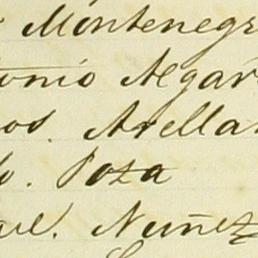 Montenegr
tonio Algar
os. Arellan
o. Poza
uel. Nuñez